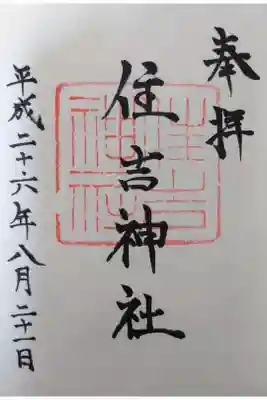 奉拝
住吉神社
平成二十六年八月二十一日
住吉神社